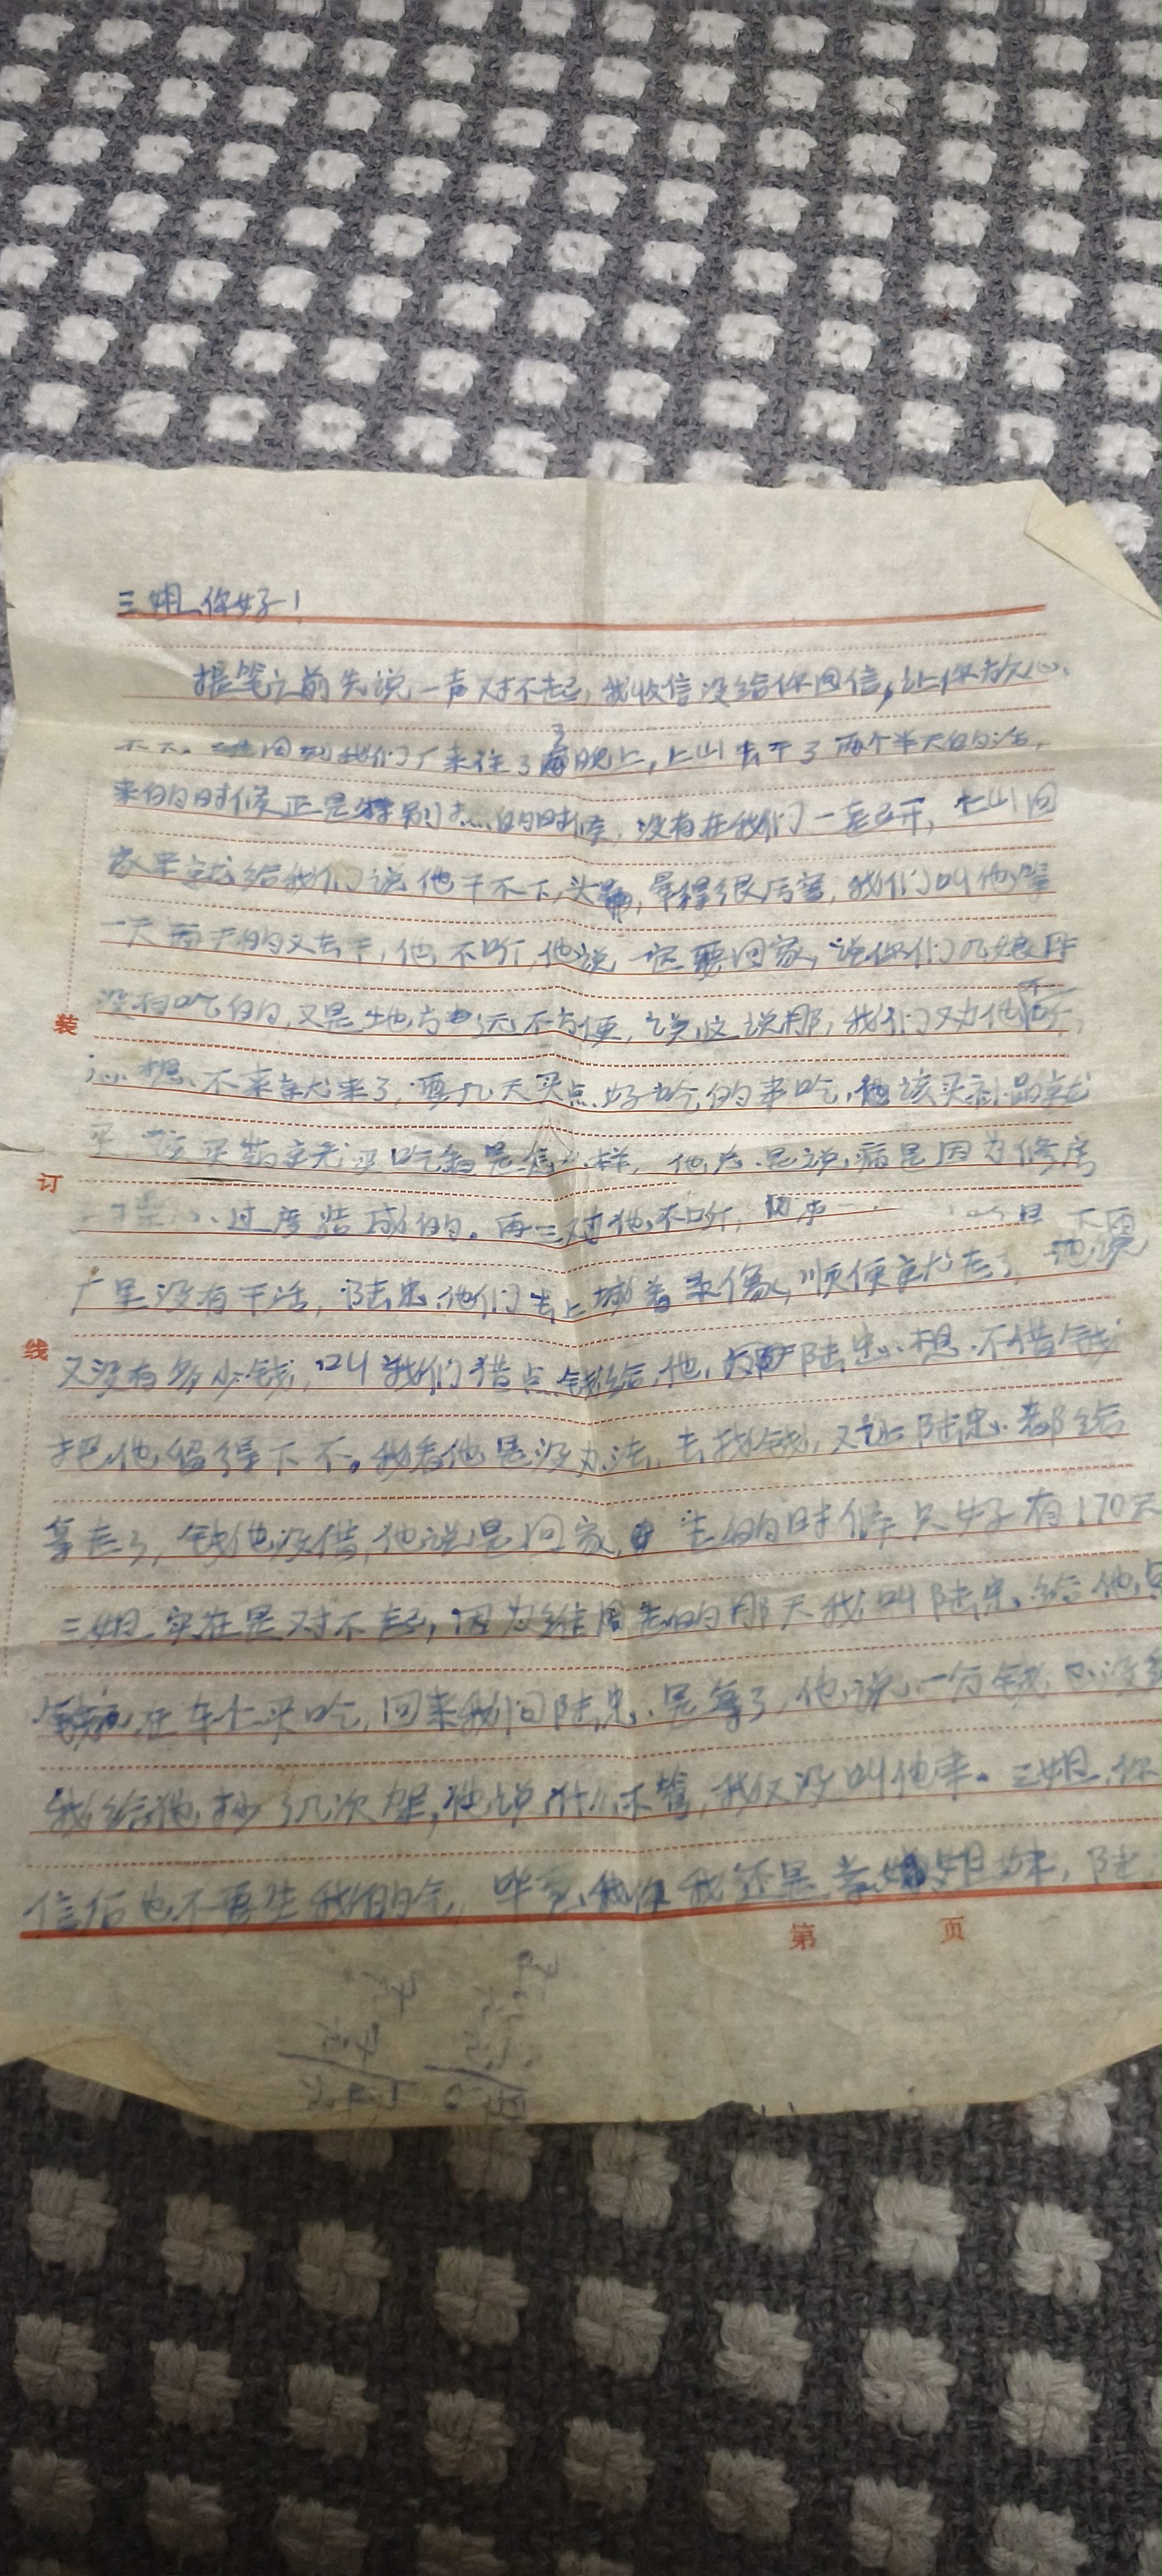 三姐你好！
提笔之前先说一声对不起，我收信没给你回信，让你放心
不下。维周到我们厂来住了3晚上，上山去干了两个半天的活，
来的时候正是特别热的时候，没有在我们一起干，上山回
家来就给我们说他干不下，头晕，晕得很厉害，我们叫他
一天两天的又去干，他不听，他说一定要回家，说你们几娘
没有吃的，又是地方远不方便，说这说那，我们劝他不听，
想不来就来了，耍几天买点好吃的来吃，该买补品就
买，该买药就买吃看是怎么样，他总是说病是因为修房
过度造成的。再三对他不听，
厂里没有干活，陆忠他们去上城看录像，顺便就走了，他说
又没有多少钱，叫我们借点钱给他，陆忠想不借钱
把他留得下不。我看他是没办法，去找钱，又让陆忠都给
拿走了，钱他没借，他说是回家，走的时候只好有170元
三姐实在是对不起，因为维周走的那天我叫陆忠给他点
钱在车上买吃，回来我问陆忠是拿了，他说一分钱也没给
我给他抄了几次架，他说什么不管，我又没叫他来。三姐，你
信后也不要生我的气，我还是亲姐妹，陆
装
订
线
第 页